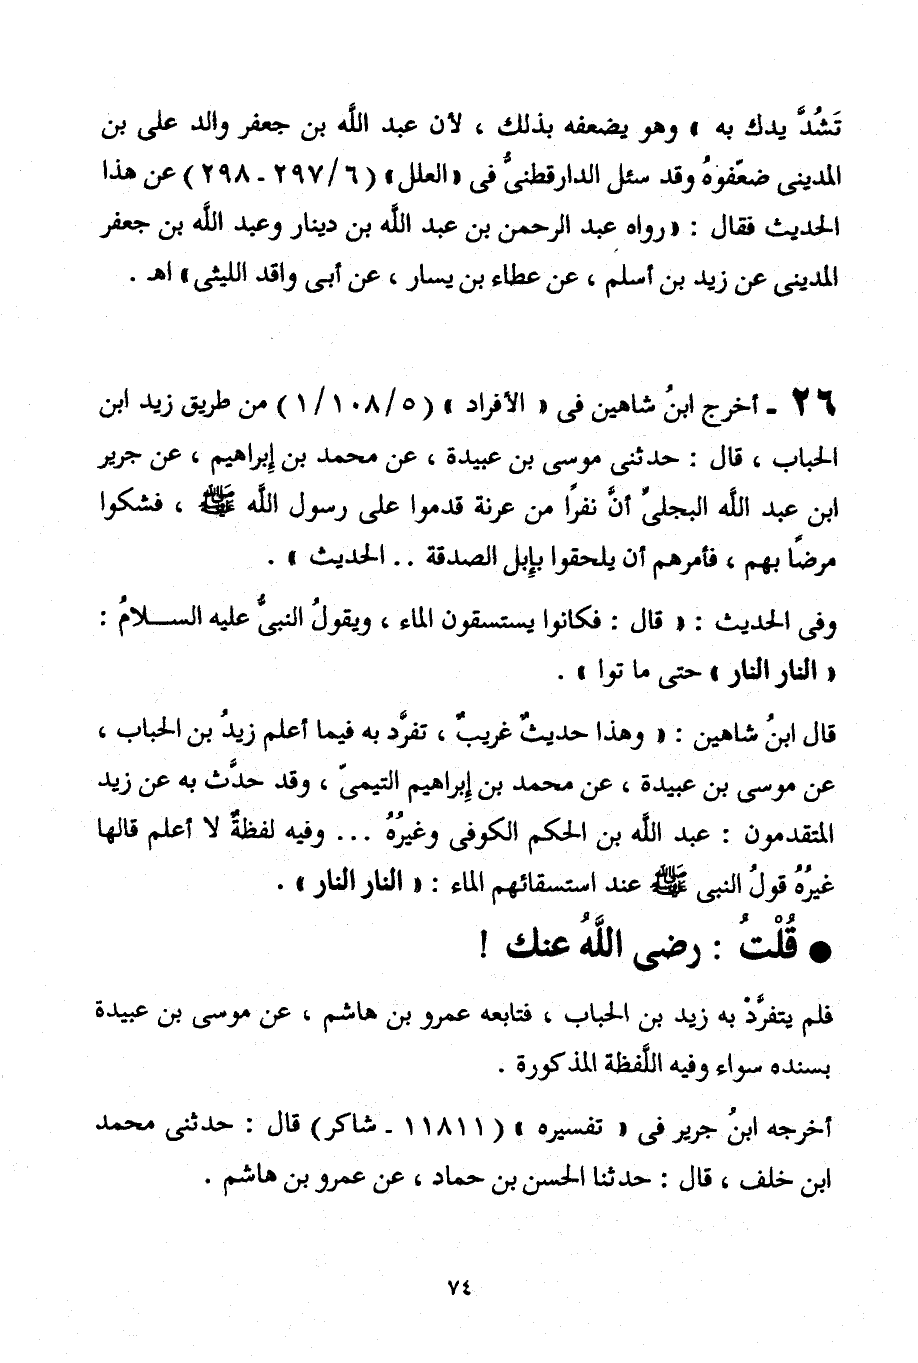 تَشُدَّ يدك به » وهو يضعفه بذلك ، لأن عبد اللَّه بن جعفر والد على بن
المدينى ضعّفوهُ وقد سئل الدارقطنىُّ فى «العلل» ( ٦/ ٢٩٧ ـ ٢٩٨ ) عن هذا
الحديث فقال : «رواه عبد الرحمن بن عبد اللَّه بن دينار وعبد اللَّه بن جعفر
المدينى عن زيد بن أسلم ، عن عطاء بن يسار ، عن أبى واقد الليثى» اهـ .
٢٦ ـ أخرج ابنُ شاهين فى « الأفراد » ( ٥/ ١٠٨/ ١ ) من طريق زيد ابن
الحباب ، قال : حدثنى موسى بن عبيدة ، عن محمد بن إبراهيم ، عن جرير
ابن عبد اللَّه البجلىِّ أنَّ نفرًا من عرنة قدموا على رسول اللَّه ﷺ ، فشكوا
مرضًا بهم ، فأمرهم أن يلحقوا بإبل الصدقة .. الحديث » .
وفى الحديث : « قال : فكانوا يستسقون الماء ، ويقولُ النبىُّ عليه الســلامُ :
« النار النار » حتى ما توا » .
قال ابنُ شاهين : « وهذا حديثٌ غريبٌ ، تفرَّد به فيما أعلم زيدُ بن الحباب ،
عن موسى بن عبيدة ، عن محمد بن إبراهيم التيمىّ ، وقد حدَّث به عن زيد
المتقدمون : عبد اللَّه بن الحكم الكوفى وغيرُهُ ... وفيه لفظةٌ لا أعلم قالها
غيرُهُ قولُ النبى ﷺ عند استسقائهم الماء : « النار النار » .
● قُلْتُ : رضى اللَّهُ عنك !
فلم يتفرَّدْ به زيد بن الحباب ، فتابعه عمرو بن هاشم ، عن موسى بن عبيدة
بسنده سواء وفيه اللَّفظة المذكورة .
أخرجه ابنُ جرير فى « تفسيره » ( ١١٨١١ ـ شاكر) قال : حدثنى محمد
ابن خلف ، قال : حدثنا الحسن بن حماد ، عن عمرو بن هاشم .
٧٤